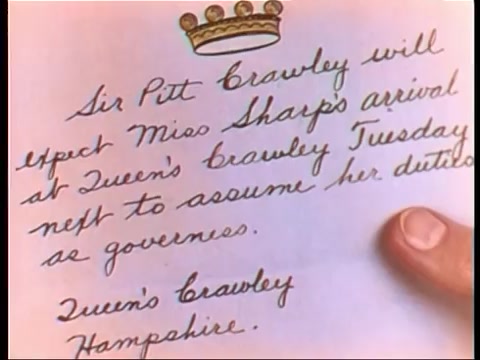 Sir Pitt Crawley will
expect Miss Sharp's arrival
at Queen's Crawley Tuesday
next to assume her duties
as governess.
Queen's Crawley
Hampshire.